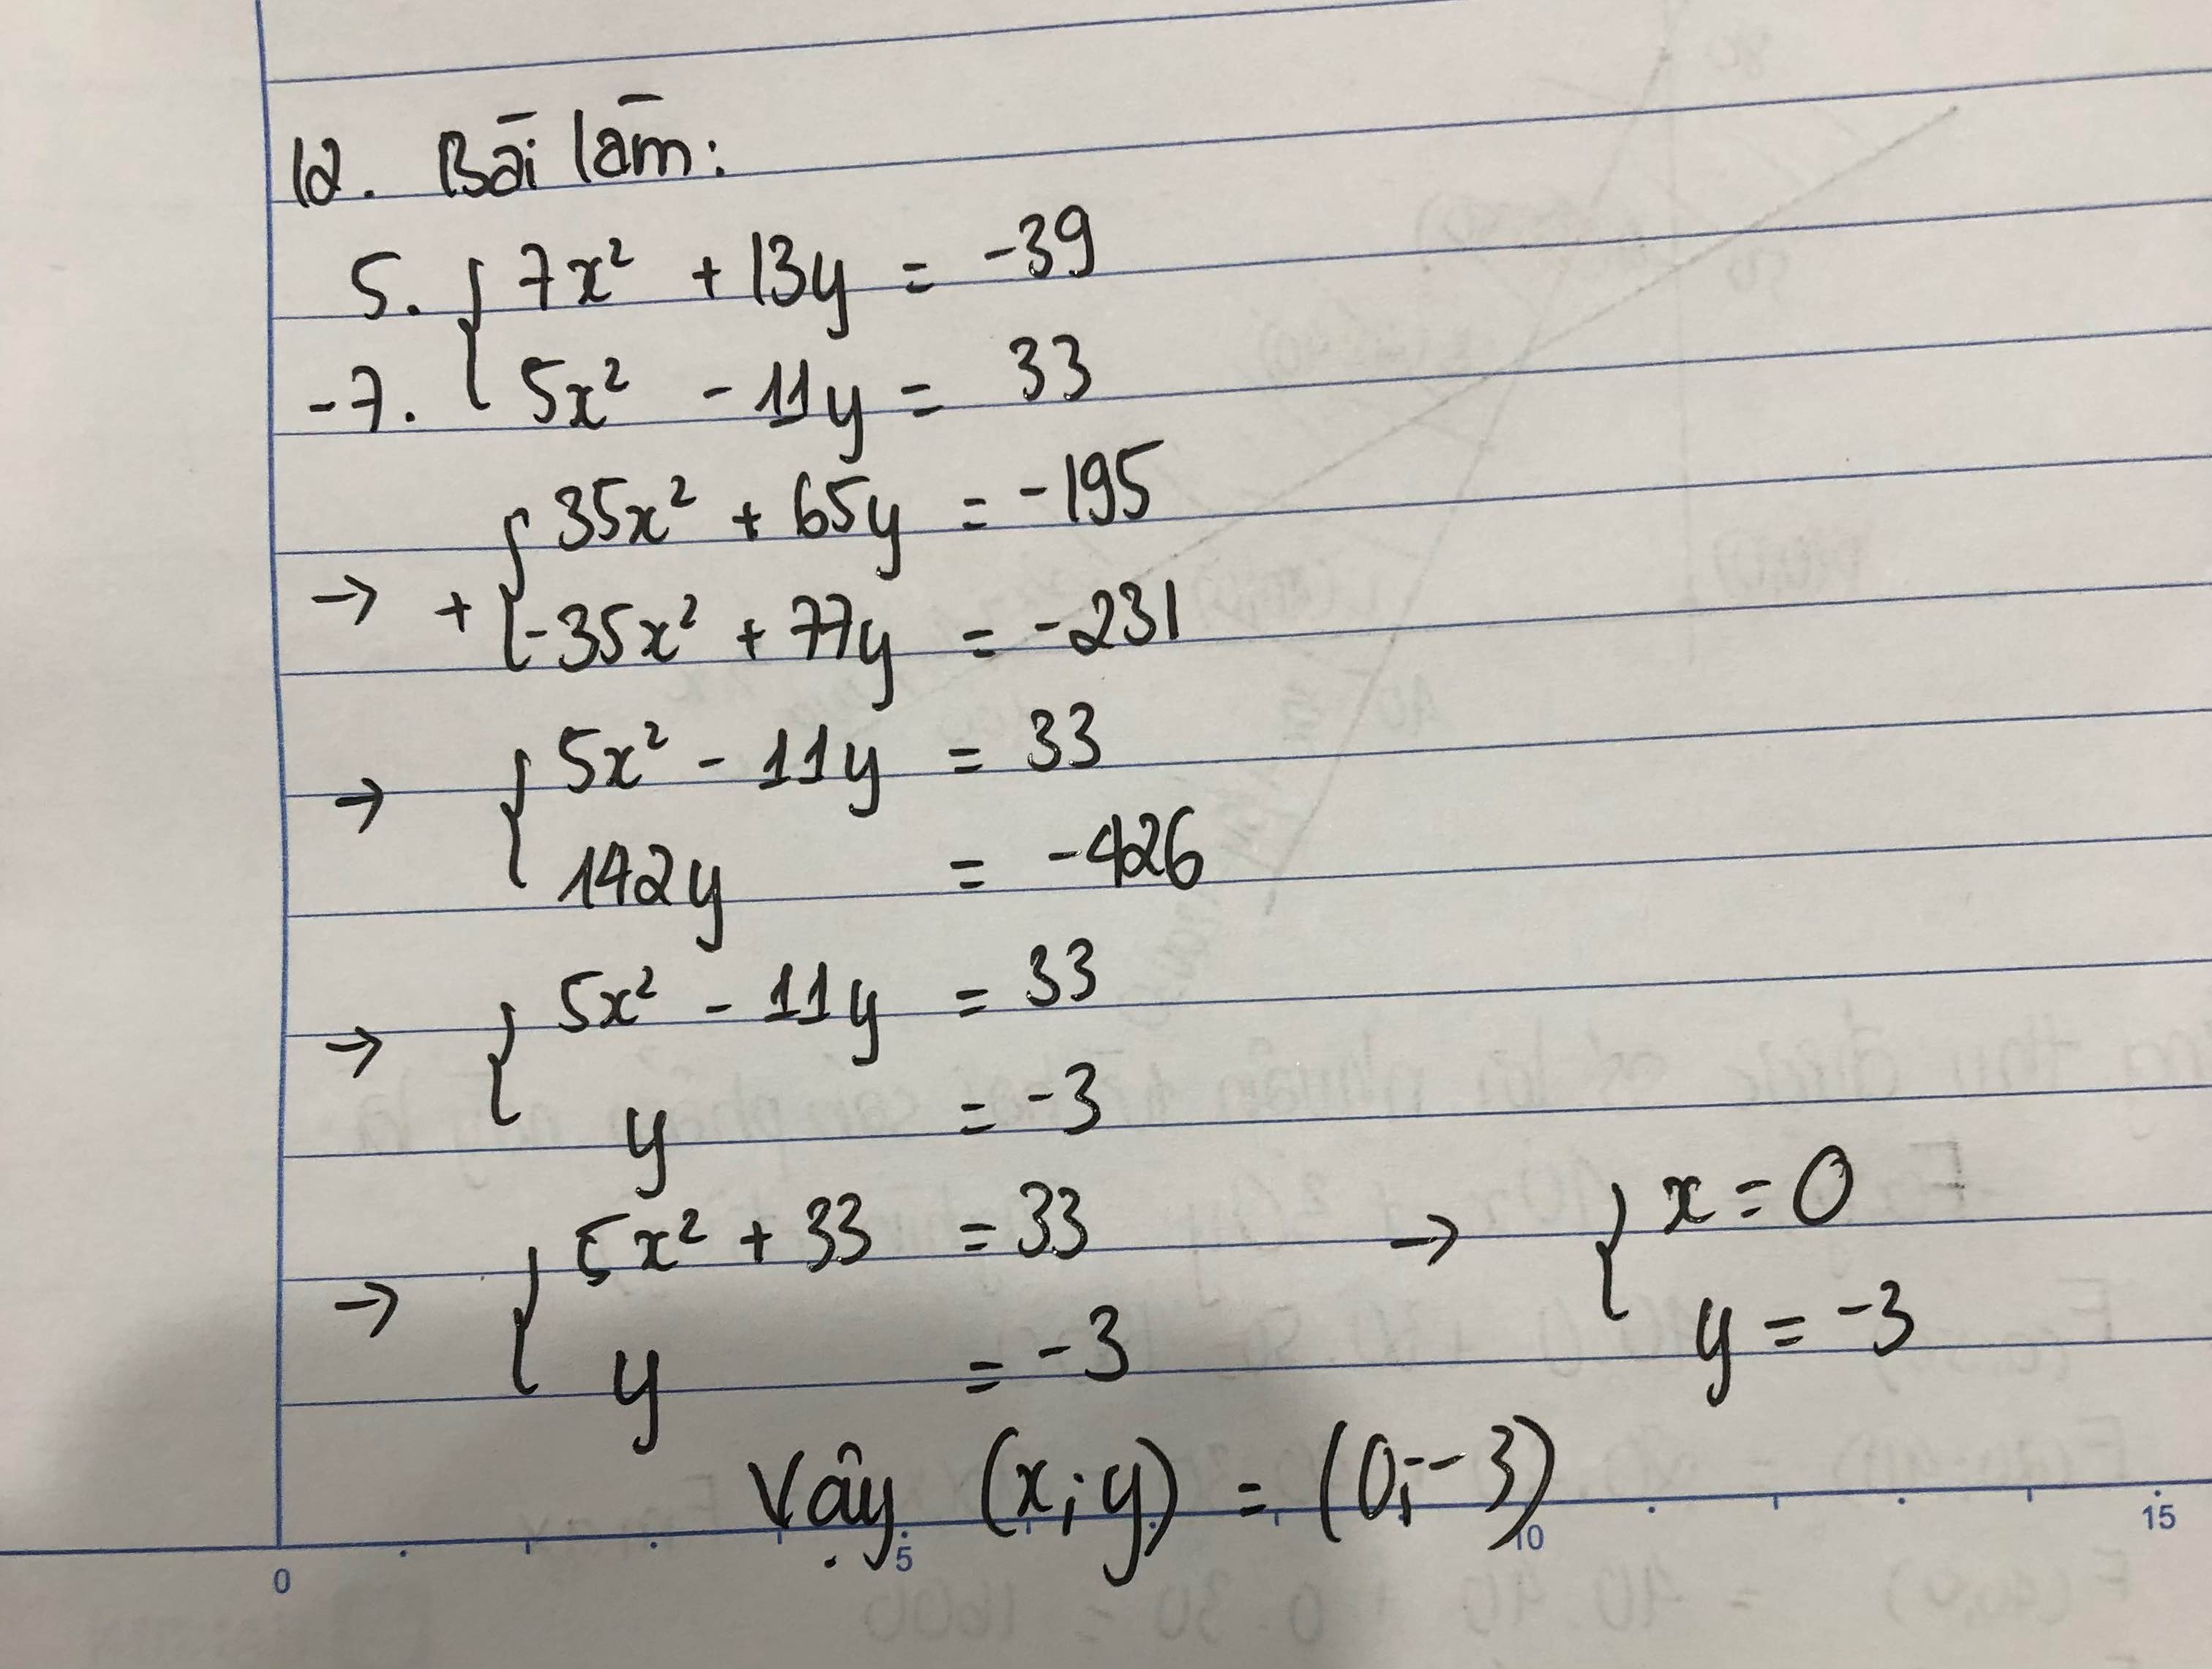 12. Bài làm:
5. { 7x² + 13y = -39
-7. { 5x² - 11y = 33
→ + { 35x² + 65y = -195
{ -35x² + 77y = -231
→ { 5x² - 11y = 33
{ 142y = -426
→ { 5x² - 11y = 33
{ y = -3
→ { 5x² + 33 = 33 → { x = 0
{ y = -3 { y = -3
Vậy (x;y) = (0;-3)
0 5 10 15